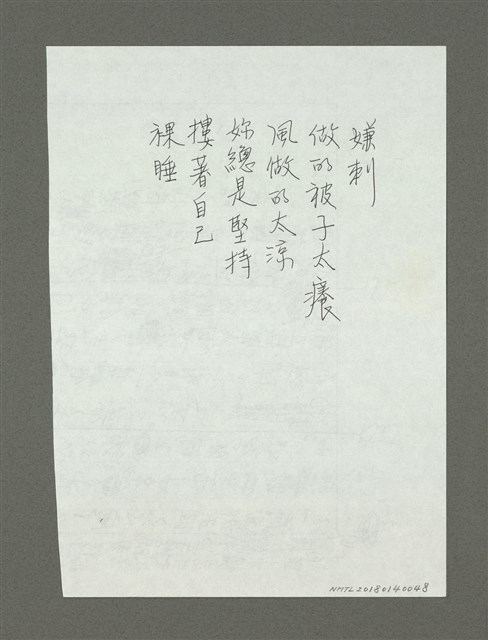 嫌刺
做的被子太癢
風做的太涼
妳總是堅持
摟著自己
裸睡
NMTL20180140048